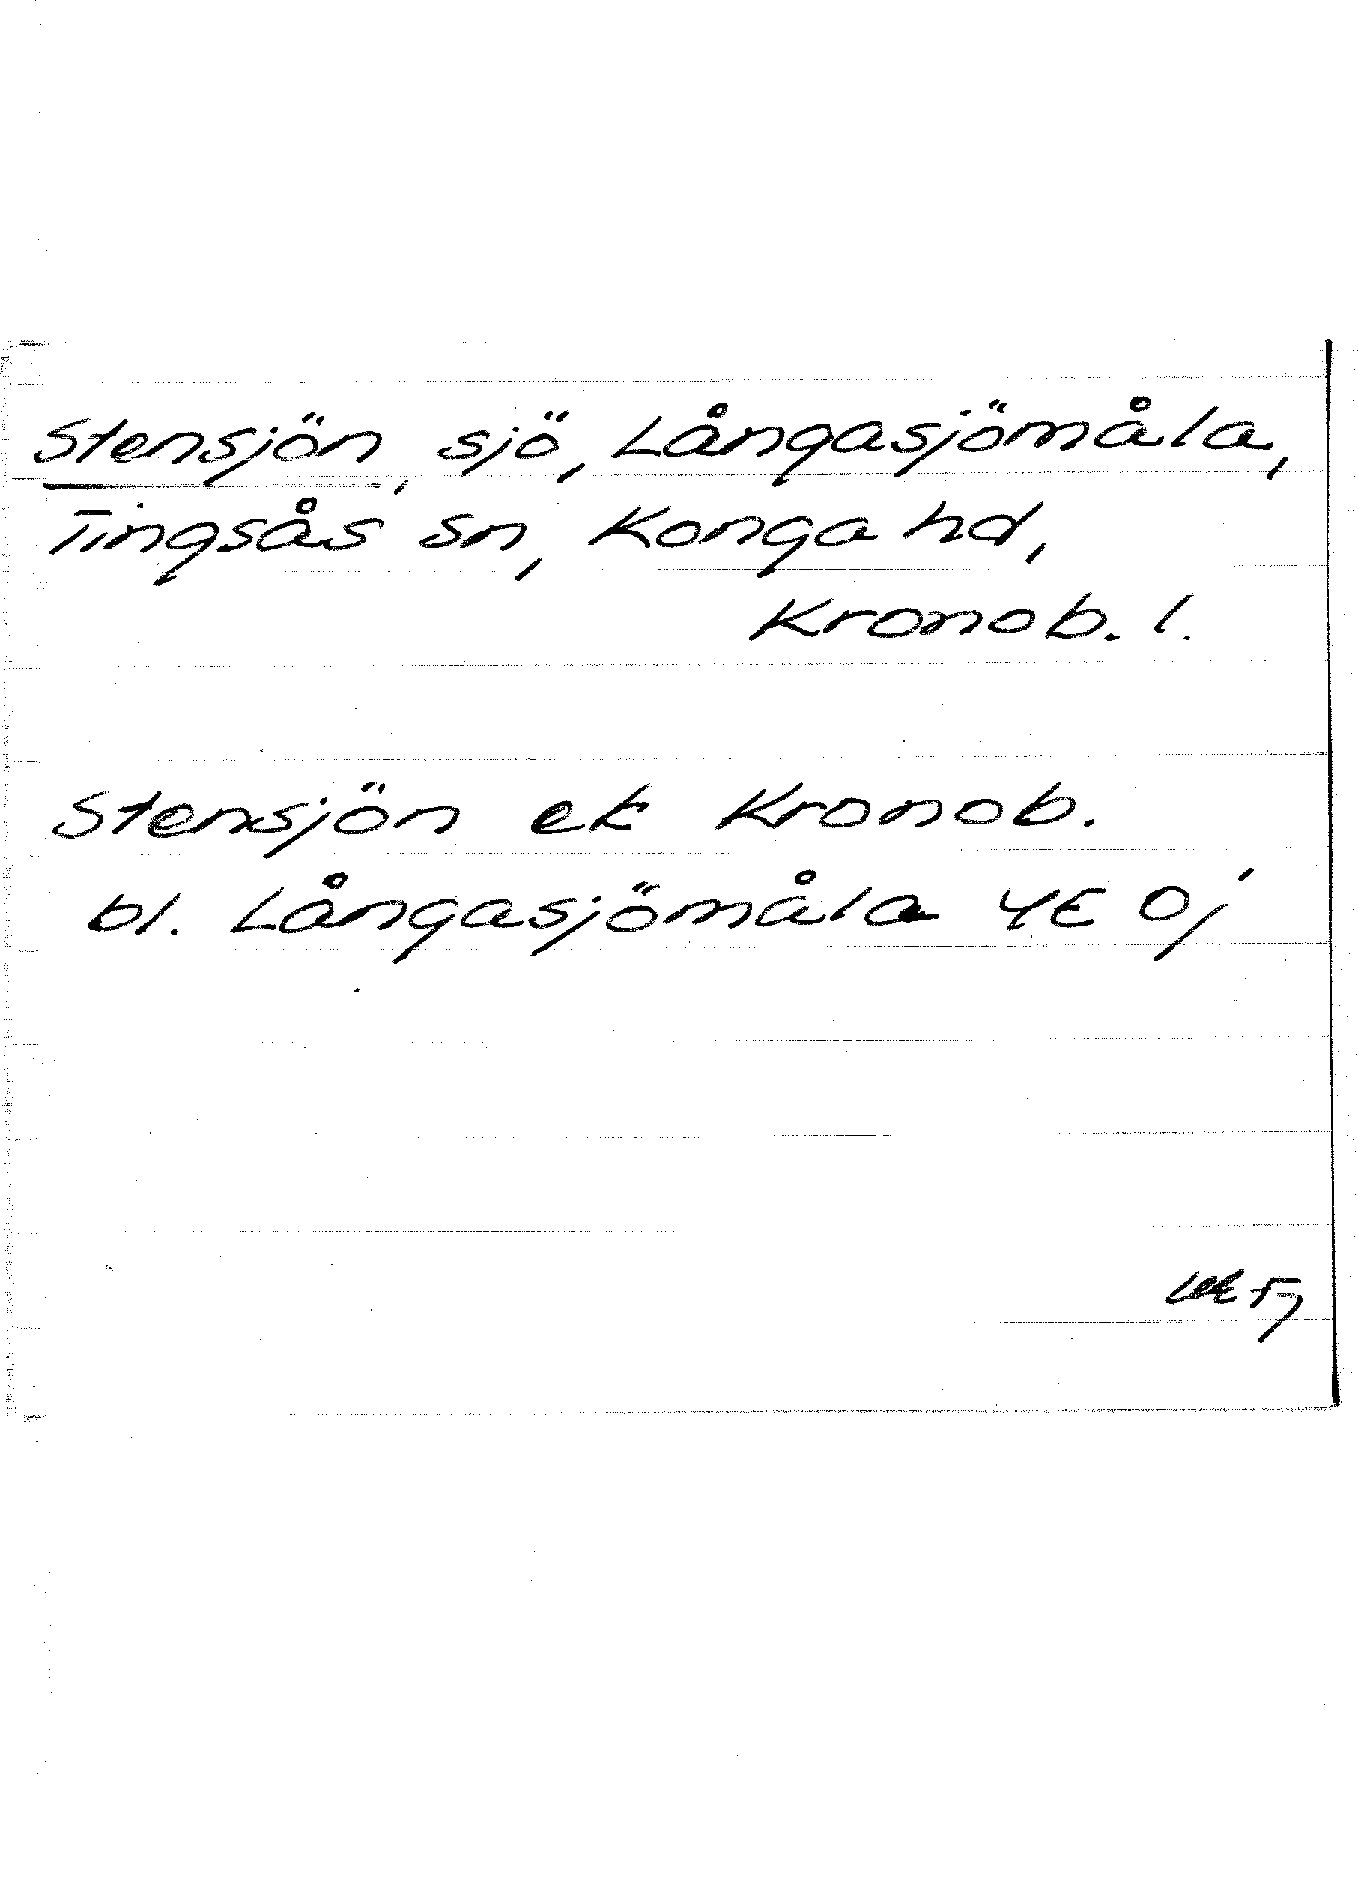 Stensjön, sjö, Långasjömåla,
Tingsås sn, Konga hd,
Kronob. l.
Stensjön ek Kronob.
bl. Långasjömåla 4E 0j